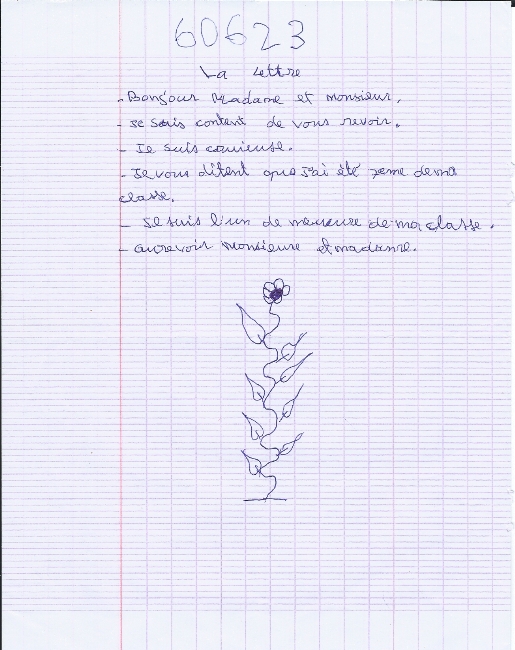 60623
La lettre
- Bonjour Madame et monsieur.
- se suis content de vous revoir.
- Je suis couieuse.
- Je vous ditent que j'ai été 2eme de ma
classe.
- Je suis l'un de meureure de ma classe.
- aurevoir Monsieure et madame.